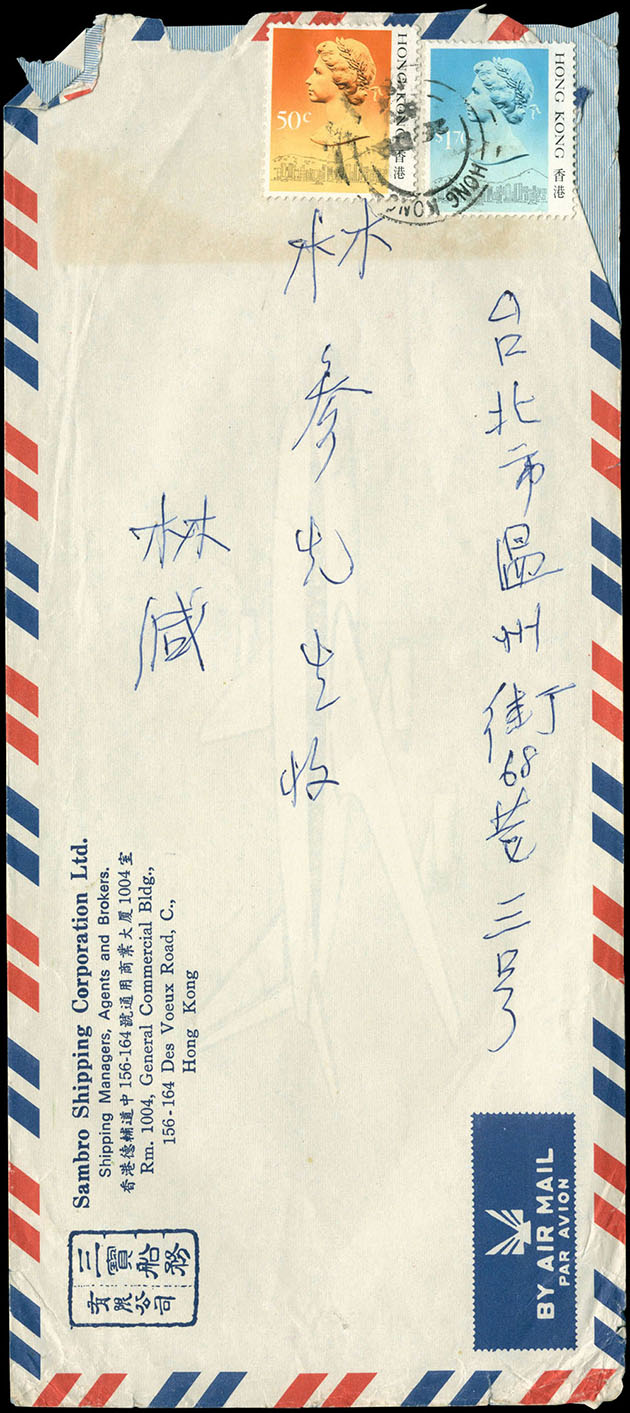 50c
HONG KONG 香港
$1.70
HONG KONG 香港
HONG KONG
台北市温州街68巷三号
林参先生收
林
Sambro Shipping Corporation Ltd.
Shipping Managers, Agents and Brokers.
香港德輔道中156-164號通用商業大厦1004室
Rm. 1004, General Commercial Bldg.,
156-164 Des Voeux Road, C.,
Hong Kong
三寶船務
有限公司
BY AIR MAIL
PAR AVION